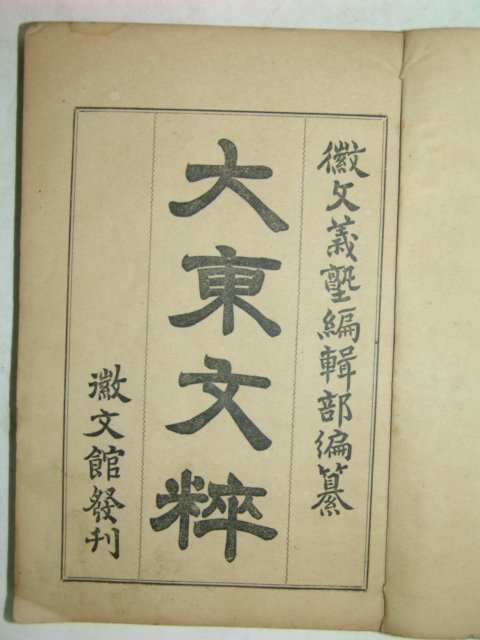 徽文義塾編輯部編纂
大東文粹
徽文館發刊